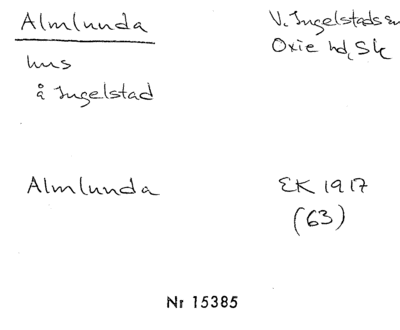 Almlunda
V. Ingelstads sn
Oxie hd, Sk
hus
å Ingelstad
Almlunda
EK 1917
(63)
Nr 15385